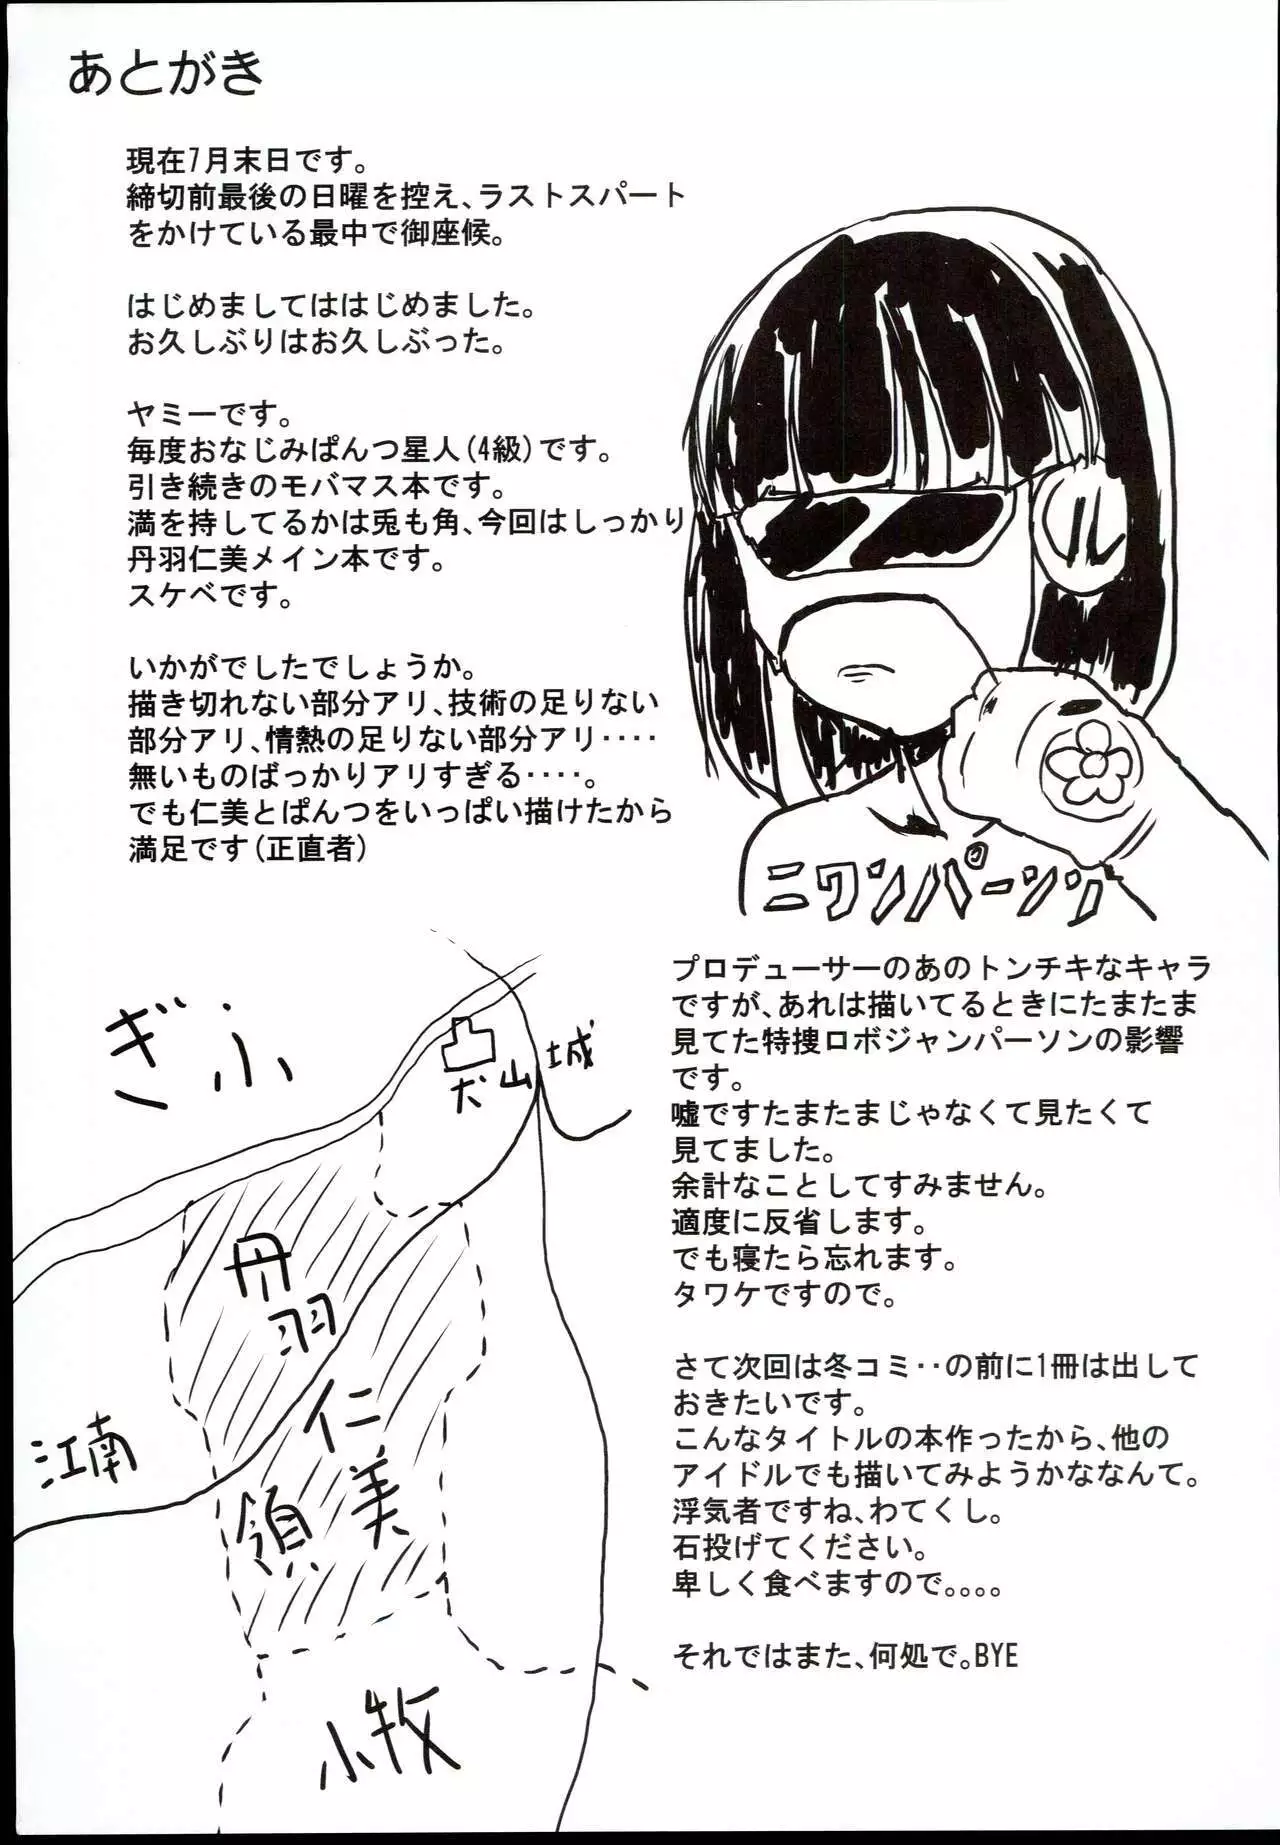 あとがき
現在7月末日です。
締切前最後の日曜を控え、ラストスパート
をかけている最中で御座候。
はじめましてははじめました。
お久しぶりはお久しぶった。
ヤミーです。
毎度おなじみぱんつ星人(4級)です。
引き続きのモバマス本です。
満を持してるかは兎も角、今回はしっかり
丹羽仁美メイン本です。
スケベです。
いかがでしたでしょうか。
描き切れない部分アリ、技術の足りない
部分アリ、情熱の足りない部分アリ‥‥
無いものばっかりアリすぎる‥‥。
でも仁美とぱんつをいっぱい描けたから
満足です(正直者)
ル
ニワンパーソン
プロデューサーのあのトンチキなキャラ
ですが、あれは描いてるときにたまたま
見てた特捜ロボジャンパーソンの影響
です。
嘘ですたまたまじゃなくて見たくて
見てました。
余計なことしてすみません。
適度に反省します。
でも寝たら忘れます。
タワケですので。
さて次回は冬コミ‥の前に1冊は出して
おきたいです。
こんなタイトルの本作ったから、他の
アイドルでも描いてみようかななんて。
浮気者ですね、わてくし。
石投げてください。
卑しく食べますので。。。。
それではまた、何処で。BYE
ぎふ
凸
犬山城
丹羽仁美領
江南
小牧